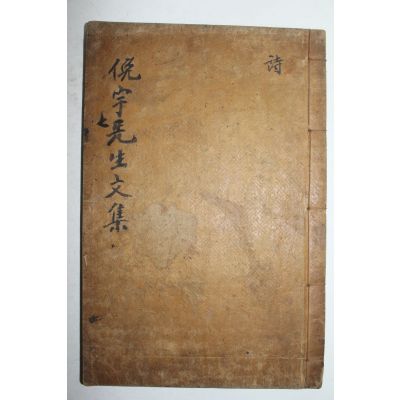 詩
俛宇先生文集
七